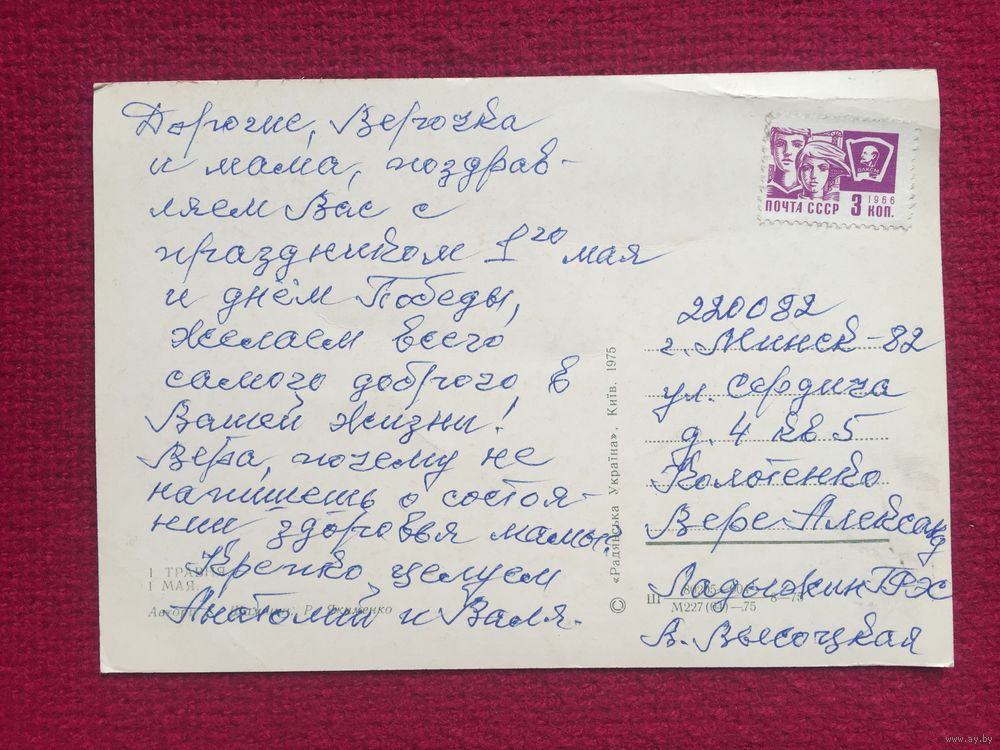 Дорогие, Верочка
и мама, поздрав-
ляем Вас с
праздником 1го мая
и днём Победы,
желаем всего
самого доброго, в
Вашей жизни!
Вера, почему не
напишешь о состоя-
нии здоровья мамы?
Крепко целуем
Анатолий и Валя.
I ТРАВНЯ
I МАЯ
Р. Якименко
ПОЧТА СССР 3 КОП.
1966
ВЛКСМ
220082
г. Минск-82
ул. Сердича
д. 4 кв 5
Колотенко
Вере Александ
Ладыжин ГРЭС
В. Высоцкая
© «Радянська Україна». Київ. 1975
М227(04)—75
www.ay.by